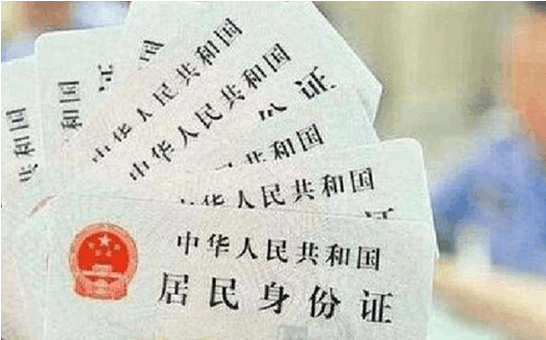 共和国
共和国
证
中华人民共和国
中华人民共和国
份证
共和国
中华人民共和国
证
中华人民共和国
居民身份证